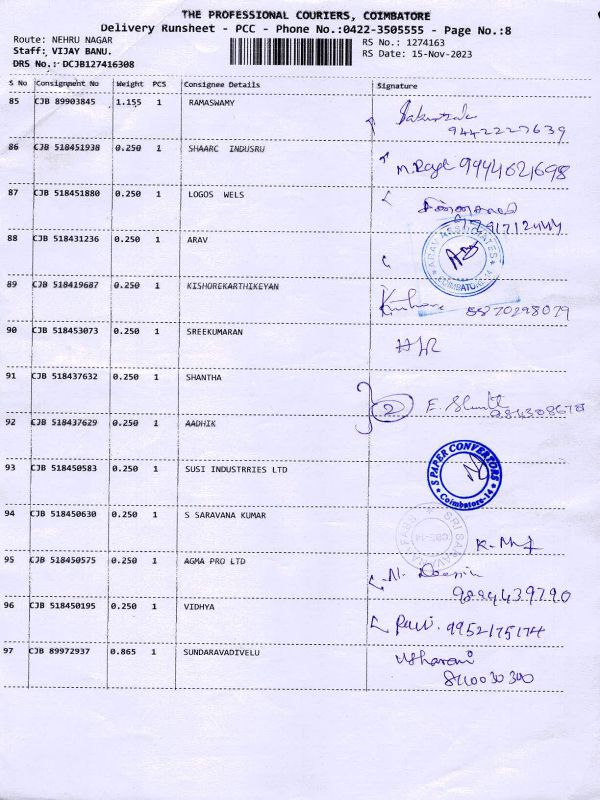 THE PROFESSIONAL COURIERS, COIMBATORE
Delivery Runsheet - PCC - Phone No.:0422-3505555 - Page No.:8
Route: NEHRU NAGAR
RS No.: 1274163
Staff: VIJAY BANU.
RS Date: 15-Nov-2023
DRS No.: DCJB127416308
S No Consignment No Weight PCS Consignee Details Signature
85 CJB 89903845 1.155 1 RAMASWAMY
9442227639
86 CJB 518451938 0.250 1 SHAARC INDUSRU
9944621698
87 CJB 518451880 0.250 1 LOGOS WELS
88 CJB 518431236 0.250 1 ARAV
ARAV ASSOCIATES
COIMBATORE-14
89 CJB 518419687 0.250 1 KISHOREKARTHIKEYAN
8870298079
90 CJB 518453073 0.250 1 SREEKUMARAN
91 CJB 518437632 0.250 1 SHANTHA
2
92 CJB 518437629 0.250 1 AADHIK
93 CJB 518450583 0.250 1 SUSI INDUSTRRIES LTD
S PAPER CONVERTORS
Coimbatore-14
94 CJB 518450630 0.250 1 S SARAVANA KUMAR
95 CJB 518450575 0.250 1 AGMA PRO LTD
9894439790
96 CJB 518450195 0.250 1 VIDHYA
Ravi. 9952175174
97 CJB 89972937 0.865 1 SUNDARAVADIVELU
Usharani